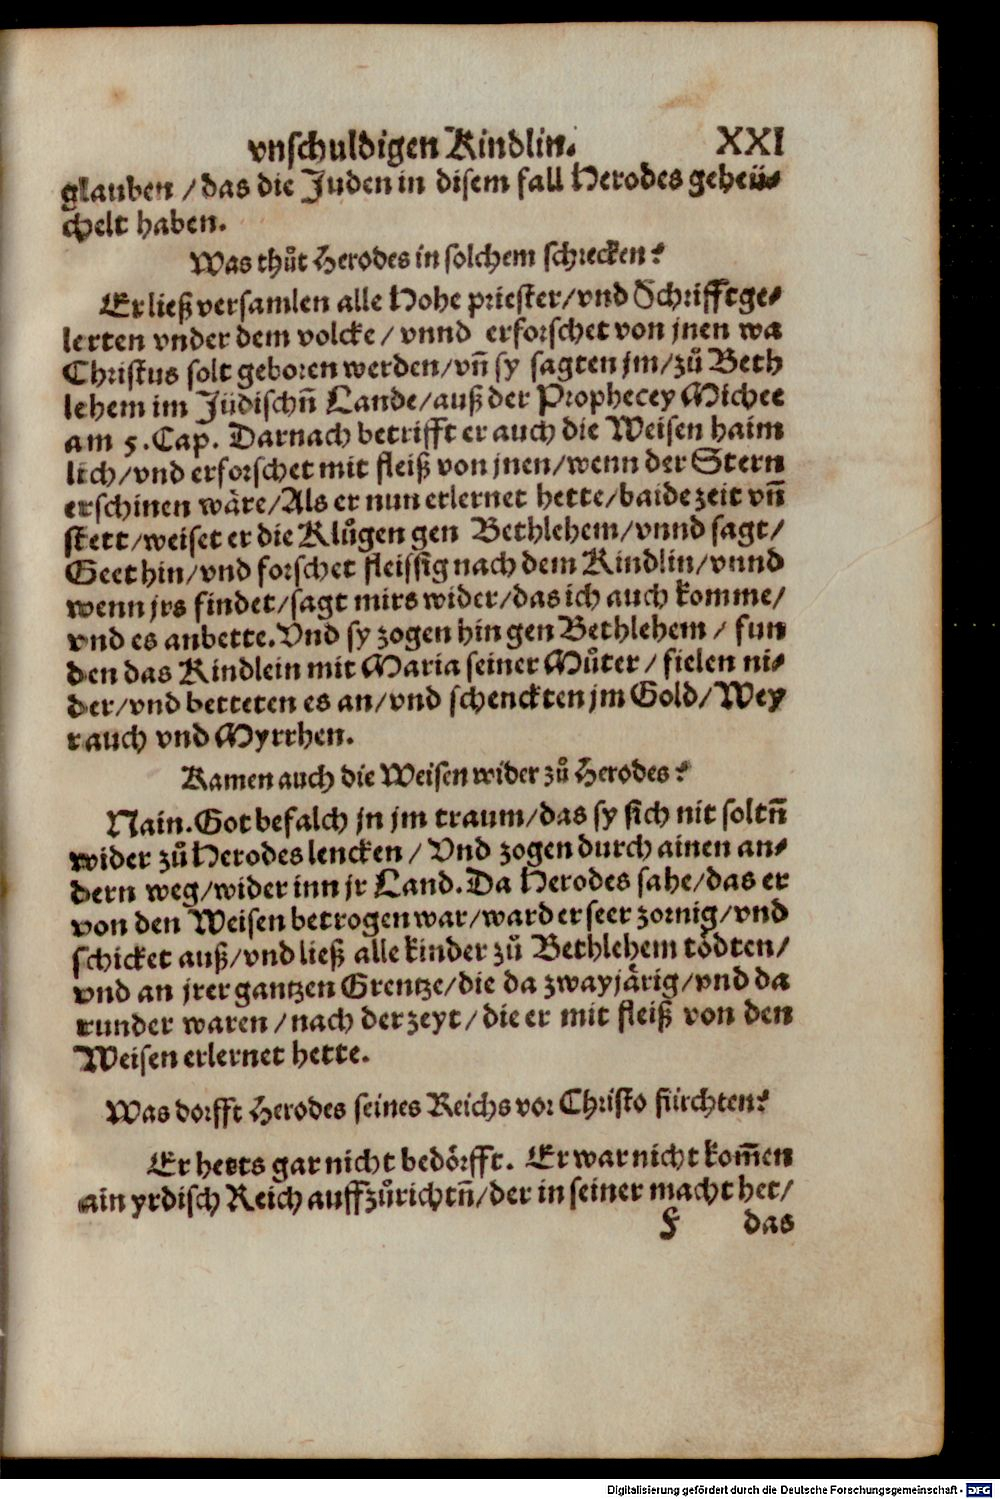 vnschuldigen Kindlin. XXI
glauben / das die Juden in disem fall Herodes geheü⸗
chelt haben.
Was thůt Herodes in solchem schrecken?
Er ließ versamlen alle Hohe priester/vnd Schrifftge⸗
lerten vnder dem volcke / vnnd erforschet von jnen wa
Christus solt geboren werden/vn̄ sy sagten jm/zů Beth
lehem im Jüdischn̄ Lande/auß der Prophecey Michee
am 5. Cap. Darnach betrifft er auch die Weisen haim
lich/vnd erforschet mit fleiß von jnen/wenn der Stern
erschinen wäre/Als er nun erlernet hette/baide zeit vn̄
stett/weiset er die Klůgen gen Bethlehem/vnnd sagt/
Geet hin/vnd forschet fleissig nach dem Kindlin/vnnd
wenn jrs findet/sagt mirs wider/das ich auch komme/
vnd es anbette. Vnd sy zogen hin gen Bethlehem / fun
den das Kindlein mit Maria seiner Můter / fielen ni⸗
der/vnd betteten es an/vnd schenckten jm Gold/Wey
rauch vnd Myrrhen.
Kamen auch die Weisen wider zů Herodes?
Nain. Got befalch jn jm traum/das sy sich nit soltn̄
wider zů Herodes lencken / Vnd zogen durch ainen an⸗
dern weg/wider inn jr Land. Da Herodes sahe/das er
von den Weisen betrogen war/ward er seer zornig/vnd
schicket auß/vnd ließ alle kinder zů Bethlehem tödten/
vnd an jrer gantzen Grentze/die da zwayjärig/vnd da
runder waren / nach der zeyt / die er mit fleiß von den
Weisen erlernet hette.
Was dorfft Herodes seines Reichs vor Christo fürchten?
Er hetts gar nicht bedörfft. Er war nicht kom̄en
ain yrdisch Reich auffzůrichtn̄/der in seiner macht het/
F das
Digitalisierung gefördert durch die Deutsche Forschungsgemeinschaft - DFG